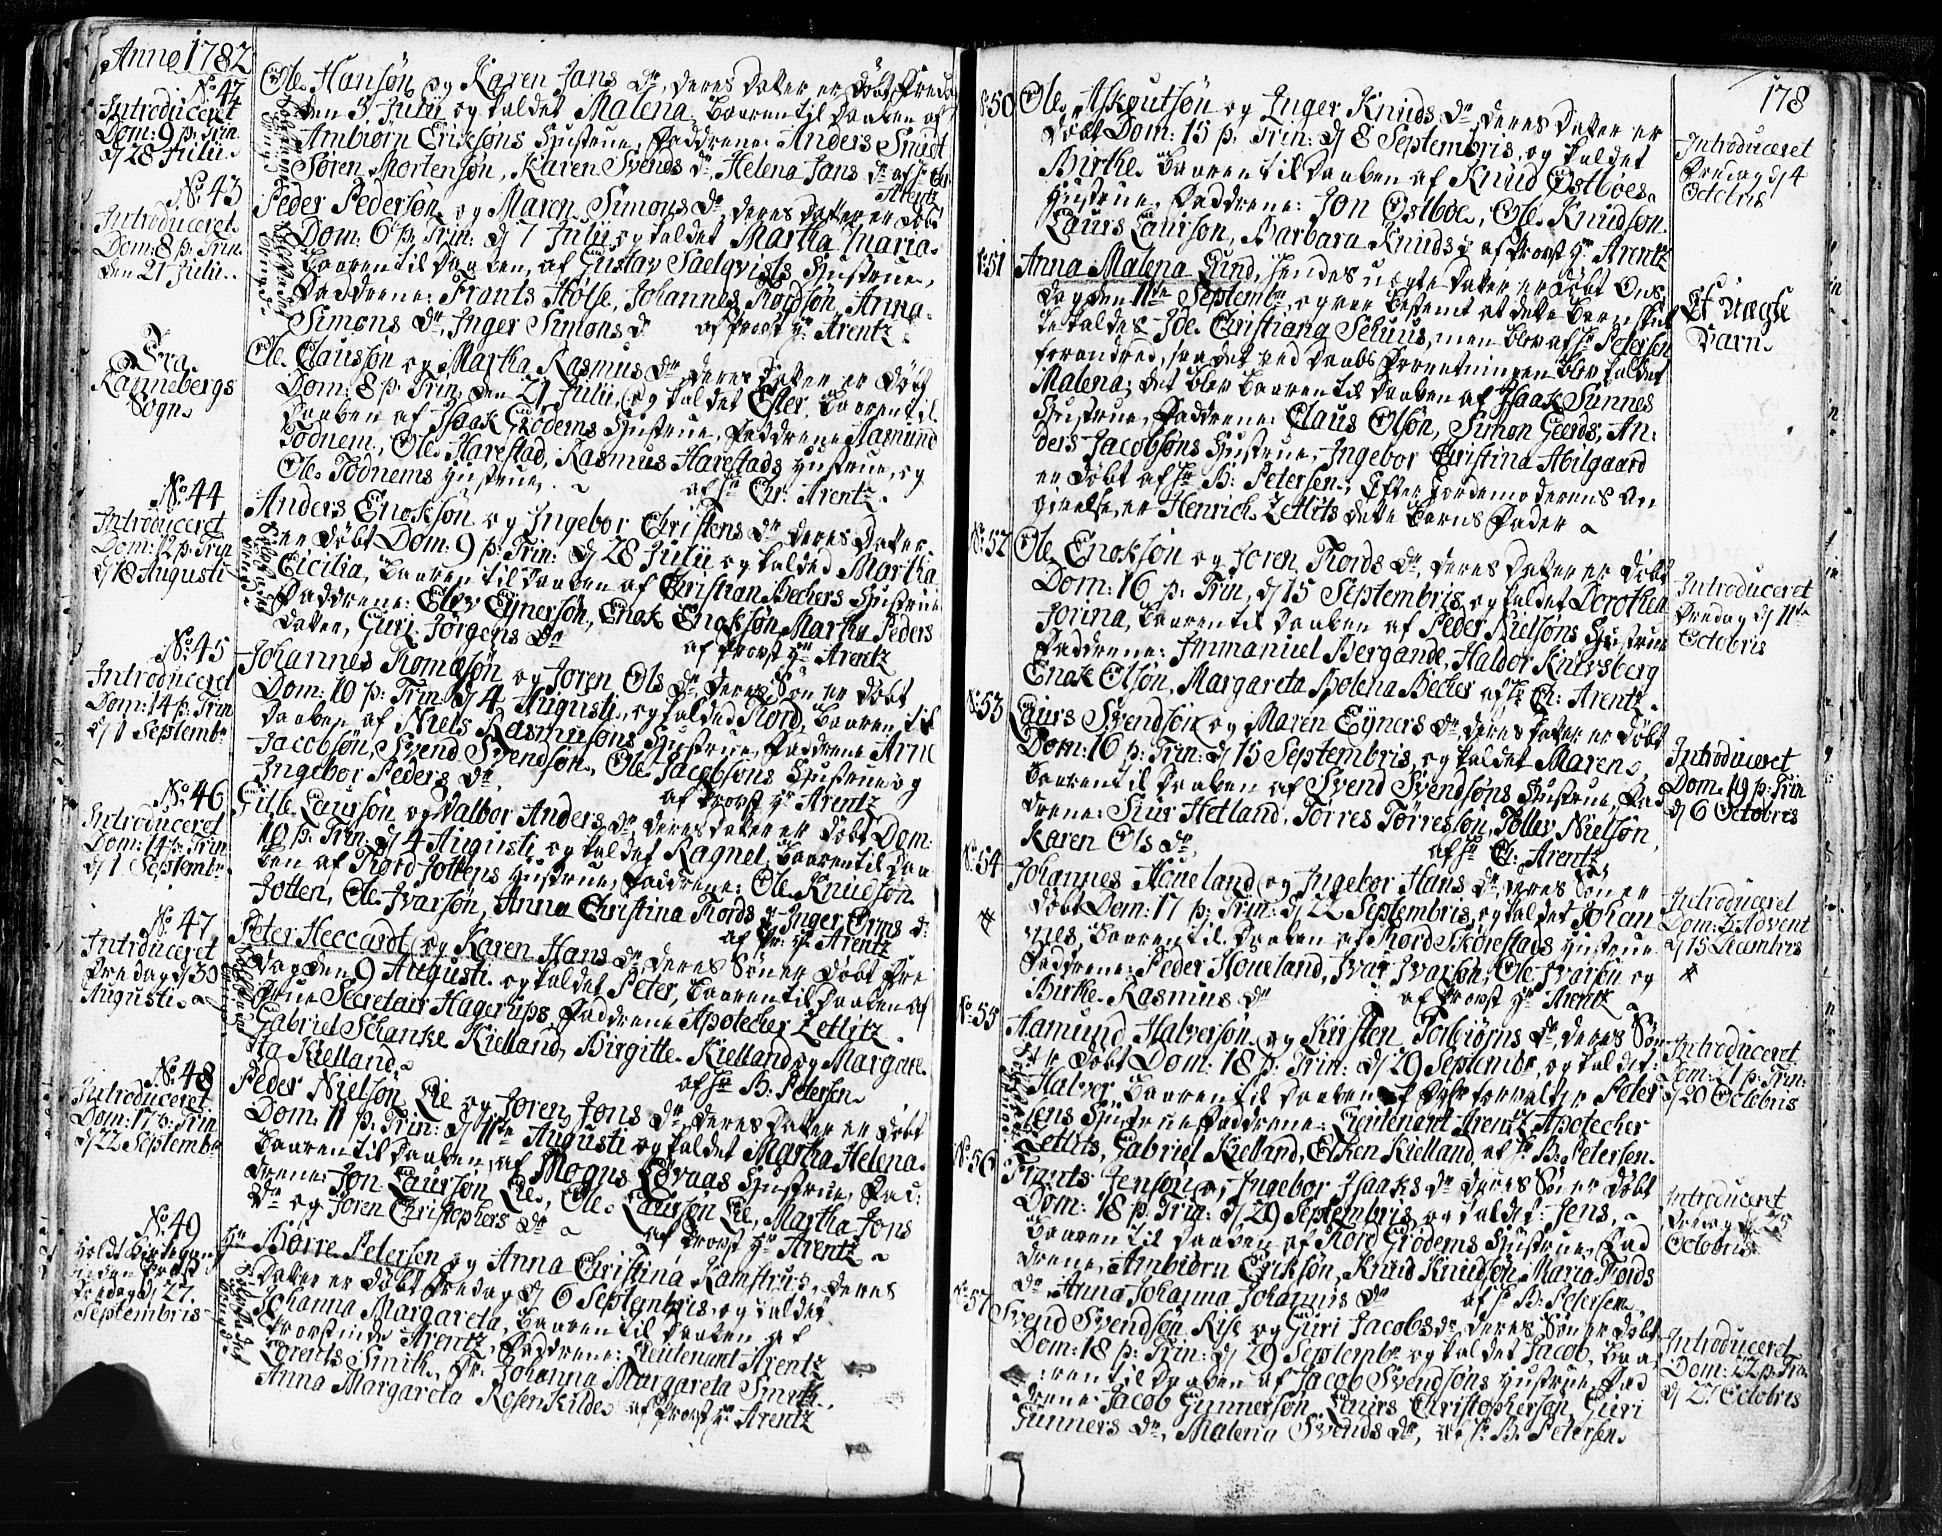 Anno 1782
No 42
Introduceret
Dom: 9 p: Trin.
d/ 28 Julii.
Ole Hansøn og Karen Jans Dr, deres Datter er Døbt Freda
den 5 Julii og kaldet Malena, baaren til Daaben af
Ambiørn Eriksøns Hustrue, Faddrene: Anders Smidt
Søren Mortensøn, Karen Svends Dr, Helena Jans Dr af Hr Chr:
Arentz
No 43
Introduceret
Dom: 8 p: Trin.
den 21 Julii.
Peder Pedersøn og Maren Simons Dr, deres Datter er Døbt
Dom: 6 p: Trin: d/ 7 Julii og kaldet Martha Maria.
baaren til Daaben, af Gustav Saelqvists Hustrue,
Faddrene: Frants Holse, Johannes Tordsøn, Anna
Simons Dr, Inger Simons Dr af Provst Hr Arentz.
Fra
Rannebergs
Sogn.
Ole Clausøn og Martha Rasmus Dr deres Datter er Døbt
Dom: 8 p: Trin: den 21 Julii, og kaldet Ester, baaren til
Daaben af Isaak Grødems Hustrue, Faddrene Aamund
Todnem, Ole Harestad, Rasmus Harestads Hustrue, og
Ole Todnems Hustrue, af Hr Chr: Arentz.
No 44
Introduceret
Dom: 12 p: Trin
d/ 18 Augusti
Anders Enoksøn og Ingebor Christens Dr deres Datter
er Døbt Dom: 9 p: Trin: d/ 28 Julii og kalded Martha
Cicilia, baaren til Daaben af Christian Bechers Hustrue
Faddrene: Elev Ejnersøn, Enok Enoksøn, Martha Peders
Datter, Guri Jørgens Dr af Provst Hr Arentz
No 45
Introduceret
Dom: 14 p: Trin
d/ 1 Septembr
Johannes Tomasøn og Joren Ols Dr, deres Søn er Døbt
Dom: 10 p: Trin d/ 4 Augusti, og kalded Tord, baaren til
Daaben af Niels Rasmusøns Hustrue, Faddrene Arne
Jacobsøn, Svend Svendsøn, Ole Jacobsøns Hustrue og
Ingebor Peders Dr, af Provst Hr Arentz
No 46
Introduceret
Dom: 14 p: Trin
d/ 1 Septembr.
Gille Laursøn og Valbor Anders Dr deres Datter er Døbt Dom:
10 p: Trin: d/ 4 Augusti og kaldet Ragnel, baaren til Daa
ben af Tord Jottens Hustrue, Faddrene: Ole Knudsøn
Jotten, Ole Ivarsøn, Anna Christina Tords Dr Inger Orms Dr
af Pr: Hr Arentz
No 47
Introduceret
Fredag d/ 30
Augusti.
Peter Heccardt og Karen Hans Dr deres Søn er Døbt Fre
Dag den 9 Augusti og kaldet Peter, baaren til Daaben af
Frue Secretair Hagerups, Faddrene Apotecher Zetlitz
Gabriel Schanke Kielland, Birgitte Kielland og Margare
ta Kielland. af Hr B: Petersen.
No 48
Introduceret
Dom: 17 p: Trin
d/ 22 Septembr
Peder Nielsøn Lie og Joren Jons Dr, deres Datter er Døbt
Dom: 11 p: Trin: d/ 11te Augusti og kaldet Martha Helena.
baaren til Daaben, af Mogns Lervaas Hustrue, Fad:
drene: Jon Laursøn Lie, Ole Laursøn Lie, Martha Jons
Dr og Joren Christophers Dr af Provst Hr Arentz
No 49
Fredag d/ 27
Septembris
Hr Børre Petersen og Anna Christina Kamstrup, deres
Datter er Døbt Fredag d/ 6 Septembris og kaldet
Johanna Margareta, baaren til Daaben af
Provstinde Arentz, Faddrene: Lieutenant Arentz
Lorents Smith, Fr: Johanna Margareta Smith.
Anna Margareta Rosenkilde af Provst Hr Arentz
178
No 50
Ole Askoutsøn og Inger Knuds Dr deres Datter er
Døbt Dom: 15 p: Trin: d/ 8 Septembris, og kaldet
Birthe baaren til Daaben af Knud Østbøes
Hustrue, Faddrene: Jon Østbøe, Ole Knudsøn
Laurs Laursøn, Barbara Knuds Dr af Provst Hr Arentz
Introduceret
Fredag d/ 4
Octobris
No 51
Anna Malena Lund, hendes uægte Datter er Døbt Ons
dag den 11te Septembr, og var bestemt at dette Barn skul
le kaldes Ide Christiana Sehuus, men blev af Hr Petersen
forandred, saa det ved Daabs Forretningen blev kaldet
Malena; det blev baaren til Daaben af Isaak Sunnes
Hustrue, Faddrene: Claus Olsøn, Simon Geerds, An:
ders Jacobsøns Hustrue, Ingebor Christina Abilgaard
er Døbt af Hr B: Petersen; Efter Jordemoderens An
givelse, er Henrich Zetlits dette Barns Fader
Et uægte
Barn.
No 52
Ole Enoksøn og Joren Tords Dr, deres Datter er Døbt
Dom: 16 p: Trin, d/ 15 Septembris og kaldet Dorothea
Jorina, baaren til Daaben af Peder Nielsøns Hustrue
Faddrene: Immanuel Bergande, Haldor Knivsberg
Enok Olsøn, Margareta Holena Becher af Hr Ch: Arentz.
Introduceret
Fredag d/ 11te
Octobris
No 53
Laurs Svendsøn og Maren Ejners Dr, deres Datter er Døbt
Dom: 16 p: Trin: d/ 15 Septembris, og kaldet Maren,
baaren til Daaben af Svend Svendsøns Hustrue, Fad
drene: Siur Hetland, Tørres Tørresøn, Tollev Nielsøn,
Karen Ols Dr, af Hr Ch: Arentz
Introduceret
Dom: 19 p: Trin
d/ 6 Octobris
No 54
Johannes Houeland og Ingebor Hans Dr, deres Søn er
Døbt Dom: 17 p: Trin: d/ 22 Septembris, og kaldet Johan
nes, baaren til Daaben af Tord Skorestads Hustrue
Faddrene: Peder Houeland, Ivar Ivarsøn, Ole Ivarsøn og
Birthe Rasmus Dr af Provst Hr Arentz
Introduceret
Dom: 3 Advent
d/ 15 Decembris
No 55
Aamund Halversøn og Kirsten Torbiørns Dr, deres Søn
er Døbt Dom: 18 p: Trin: d/ 29 Septembr, og kaldet:
Halvor, baaren til Daaben af Peter
Jens Hustrue, Faddrene: Lieutenant Arentz Apotecher
Zetlits, Gabriel Kielland, Elken Kielland af Hr B: Petersen.
Introduceret
Dom: 21 p: Trin:
d/ 20 Octobris
No 56
Frants Jensøn og Ingebor Isaaks Dr deres Søn er Døbt
Dom: 18 p: Trin: d/ 29 Septembris og kaldet Jens,
baaren til Daaben af Tord Grødems Hustrue, Fad
drene, Ambiørn Eriksøn, Knud Knudsøn, Maria Tords
Dr Anna Johanna Johannis Dr af Hr B: Petersen
Introduceret
Fredag d/ 25
Octobris
No 57
Svend Svendsøn Rise og Guri Jacobs Dr, deres Søn er Døbt
Dom: 18 p: Trin: d/ 29 Septembr og kaldet Jacob, baa
ren til Daaben af Jacob Svendsøns Hustrue, Fad
drene: Jacob Gunnersøn, Laurs Christophersøn, Guri
Gunners Dr, Malena Svends Dr, af Hr B. Petersen.
Introduceret
Dom: 22 p: Trin
d/ 27 Octobris